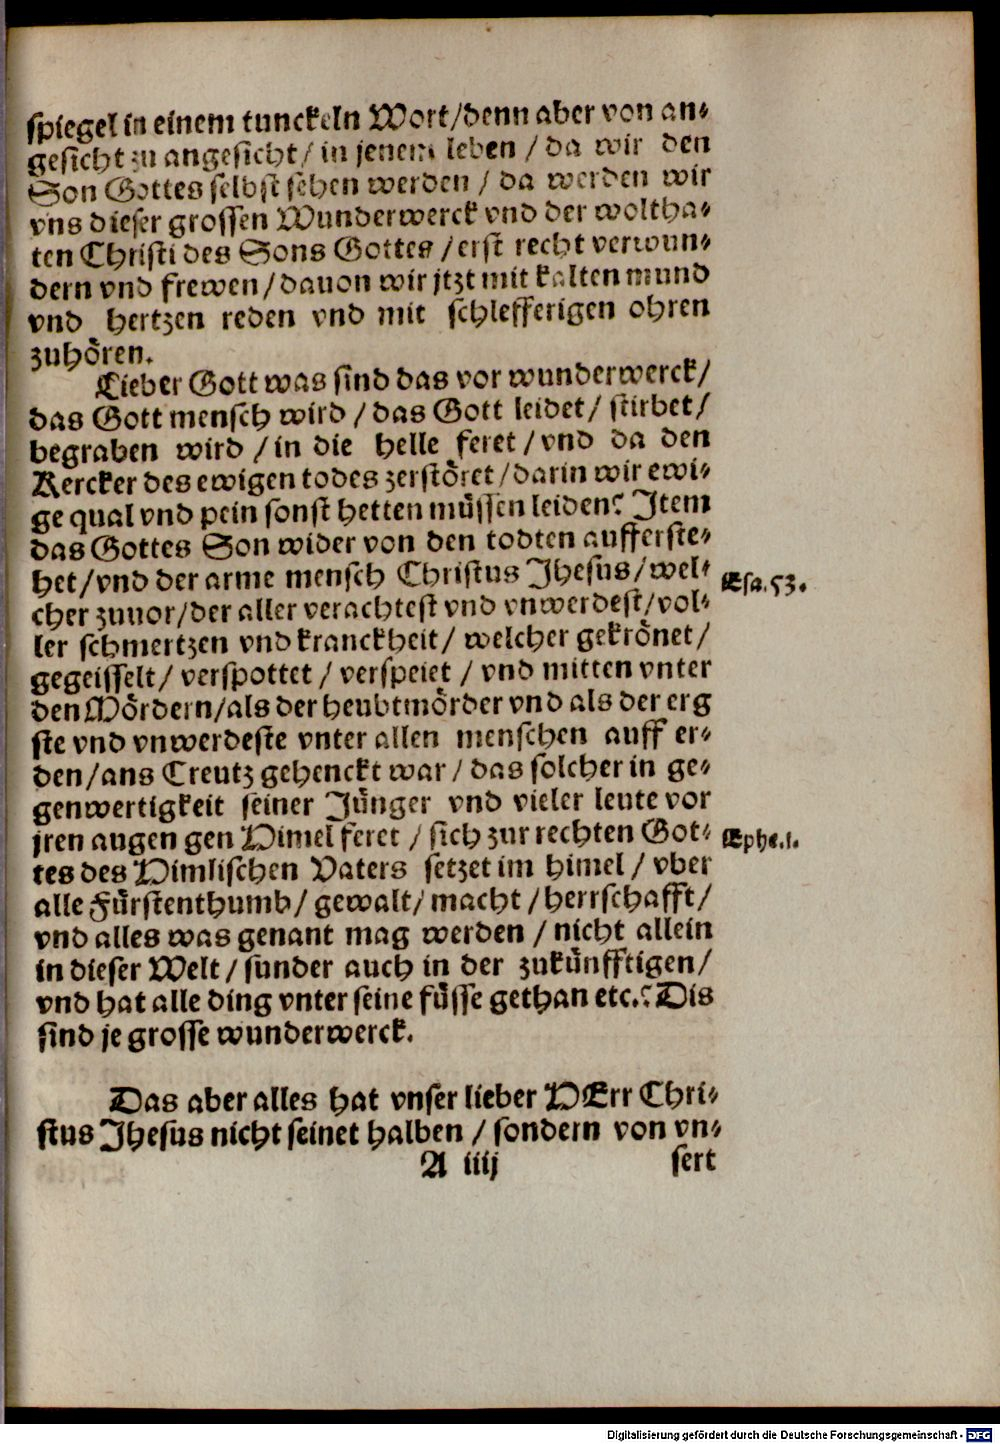 spiegel in einem tunckeln Wort/denn aber von an⸗
gesicht zu angesicht/ in jenem leben / da wir den
Son Gottes selbst sehen werden / da werden wir
vns dieser grossen Wunderwerck vnd der woltha⸗
ten Christi des Sons Gottes /erst recht verwun⸗
dern vnd frewen/dauon wir jtzt mit kalten mund
vnd hertzen reden vnd mit schlefferigen ohren
zuhören.
Lieber Gott was sind das vor wunderwerck/
das Gott mensch wird /das Gott leidet/ stirbet/
begraben wird /in die helle feret /vnd da den
Kercker des ewigen todes zerstöret /darin wir ewi⸗
ge qual vnd pein sonst hetten müssen leiden? Item
das Gottes Son wider von den todten aufferste⸗
het/vnd der arme mensch Christus Jhesus/wel⸗
Esa.53.
cher zuuor/der aller verachtest vnd vnwerdest/vol⸗
ler schmertzen vnd kranckheit/ welcher gekrönet/
gegeisselt/ verspottet / verspeiet / vnd mitten vnter
den Mördern/als der heubtmörder vnd als der erg
ste vnd vnwerdeste vnter allen menschen auff er⸗
den/ans Creutz gehenckt war / das solcher in ge⸗
genwertigkeit seiner Jünger vnd vieler leute vor
jren augen gen Himel feret / sich zur rechten Got⸗
Ephe.1.
tes des Himlischen Vaters setzet im himel/ vber
alle Fürstenthumb/ gewalt/ macht /herrschafft/
vnd alles was genant mag werden / nicht allein
in dieser Welt/ sunder auch in der zukünfftigen/
vnd hat alle ding vnter seine füsse gethan etc.? Dis
sind je grosse wunderwerck.
Das aber alles hat vnser lieber HErr Chri⸗
stus Jhesus nicht seinet halben / sondern von vn⸗
A iiij sert
Digitalisierung gefördert durch die Deutsche Forschungsgemeinschaft - DFG